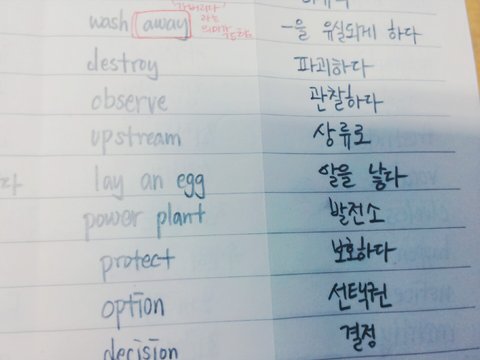 wash away -을 유실되게 하다
destroy 파괴하다
observe 관찰하다
upstream 상류로
lay an egg 알을 낳다
power plant 발전소
protect 보호하다
option 선택권
decision 결정